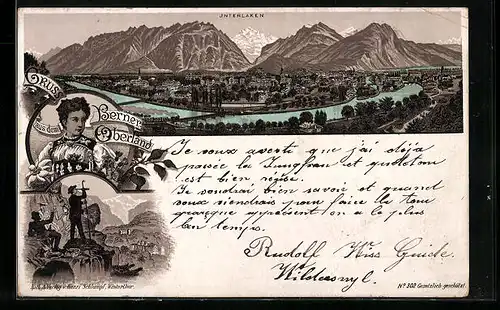 INTERLAKEN
GRUSS
aus dem
Berner
Oberland
Je vous averti que j'ai déja
passée la Jungfrau et que tout
est bien réuse.
Je voudrai bien savoir et quand
vous viendrais pour faire la
apprésent on a le plus
bau temps.
Rudolf Wiss Guide.
Wilderswyl.
Schlumpf, Winterthur.
No 302 Gesetzlich geschützt.